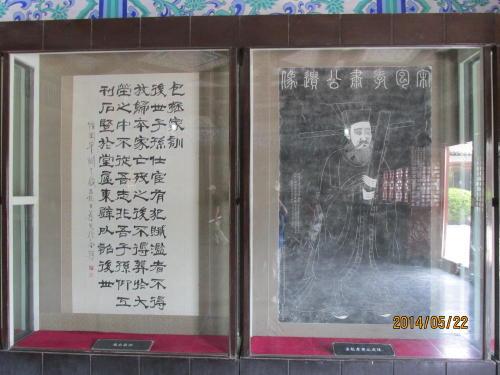 包拯家訓
後世子孫仕宦有犯贓濫者不得
放歸本家亡歿之後不得葬於大
塋之中不從吾志非吾子孫仰工
刊石豎於堂屋東壁以詔後世
宋包孝肅公遺像
2014/05/22